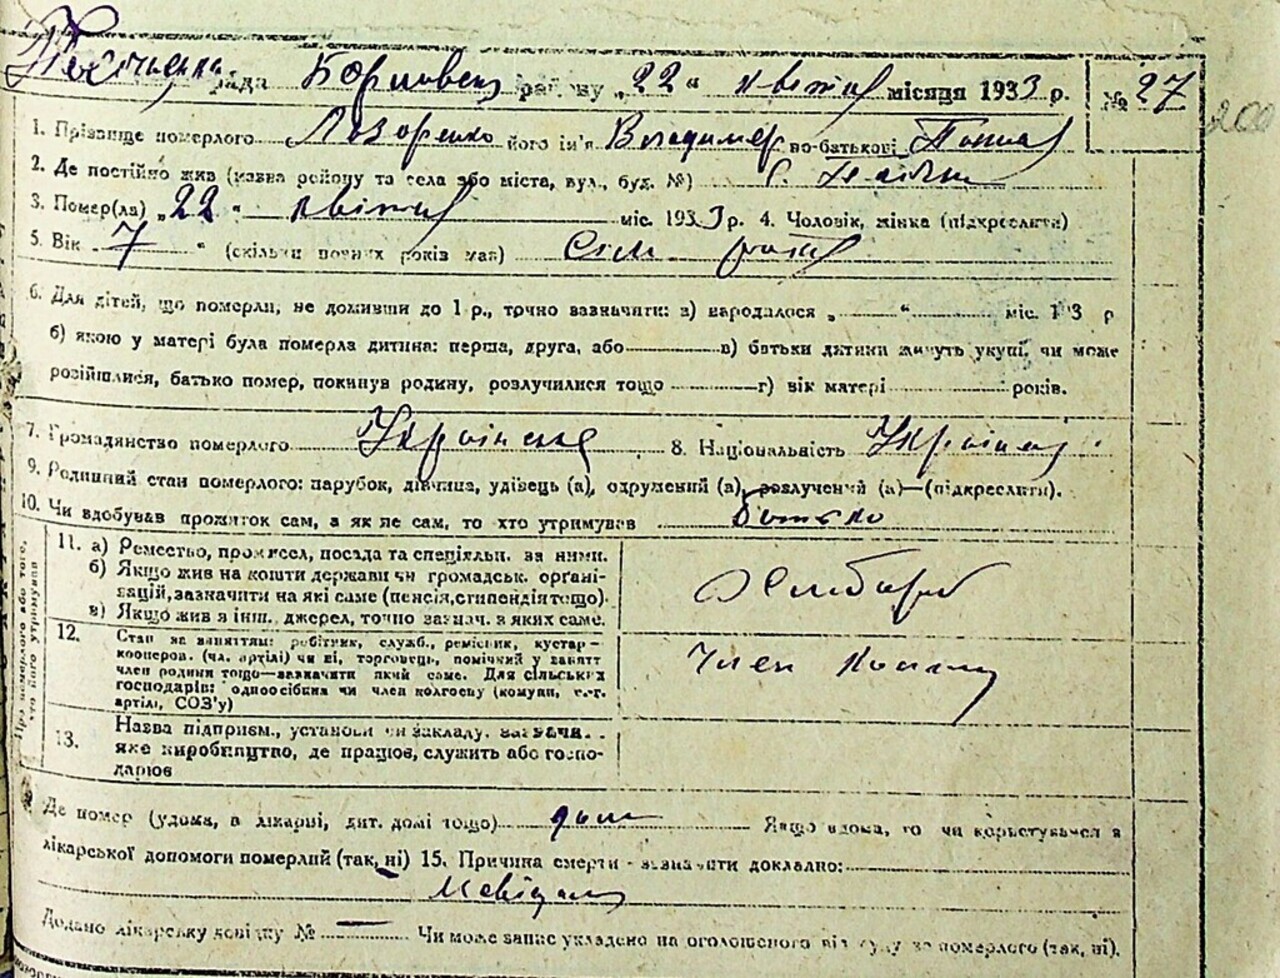 рада районy „22“ квітня місяця 1933 р. № 27
200
1. Прізвище померлого Лазоренко його ім'я Володимер по-батькові
2. Де постійно жив (назва району та села або міста, вул., буд. №) с.
3. Помер(ла) „22“ квітня міс. 1933 р. 4. Чоловік, жінка (підкреслити)
5. Вік „7“ (скільки повних років мав) Сім років
6. Для дітей, що померли, не доживши до 1 р., точно зазначити: а) народилося „ “ міс. 193 р
б) якою у матері була померла дитина: перша, друга, або в) батьки дитини живуть укупі, чи може
розійшлися, батько помер, покинув родину, розлучилися тощо г) вік матері років.
7. Громадянство померлого Українське 8. Національність
9. Родинний стан померлого: парубок, дівчина, удівець (а), одружений (а), розлучений (а)—(підкреслити).
10. Чи здобував прожиток сам, а як не сам, то хто утримував батько
Про померлого або того, хто його утримував
11. а) Ремество, промисел, посада та спеціяльн. за ними.
б) Якщо жив на кошти держави чи громадськ. органі-
зацій, зазначити на які саме (пенсія, стипендія тощо).
в) Якщо жив з інш. джерел, точно зазнач. з яких саме.
Хлібороб
12. Стан за заняттям: робітник, служб., ремісник, кустар-
кооперов. (чл. артілі) чи ні, торговець, помічний у занятт
член родини тощо—зазначити який саме. Для сільських
господарів: одноосібник чи член колгоспу (комуни, с.-г.
артілі, СОЗ'у)
Член
13. Назва підприєм., установи чи закладу, зазначи.
яке виробництво, де працюв, служить або госпо-
дарюв
Де помер (удома, в лікарні, дит. домі тощо) дома Якщо вдома, то чи користувався з
лікарської допомоги померлий (так, ні) 15. Причина смерти - зазначити докладно:
Невідома
Додано лікарську довідку № — Чи може запис укладено на оголошеного від суду за померлого (так, ні).